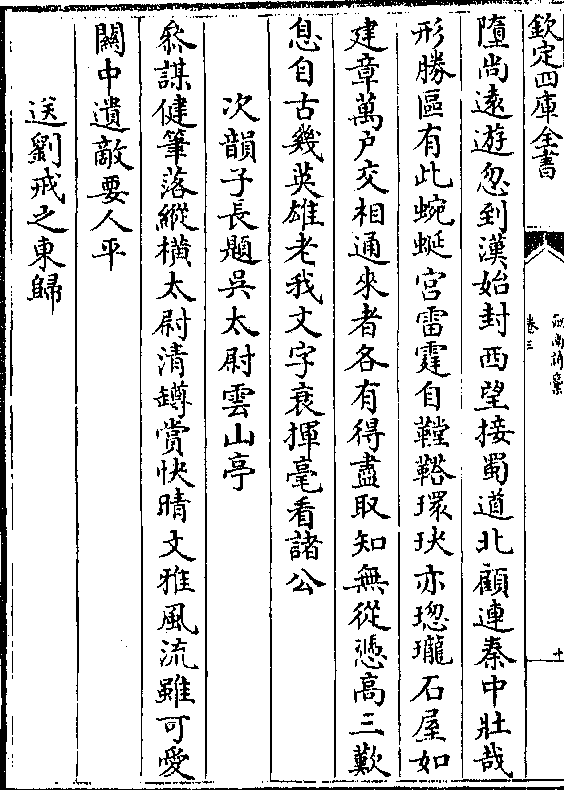 欽定四庫全書
卷三
十
墮尚遠遊忽到漢始封西望接蜀道北顧連秦中壯哉
形勝區有此蜿蜒宮雷霆自鞺鞳環玦亦璁瓏石屋如
建章萬户交相通來者各有得盡取知無從憑高三歎
息自古幾英雄老我文字衰揮毫看諸公
次韻子長題吳太尉雲山亭
叅謀健筆落縱橫太尉清罇賞快晴文雅風流雖可愛
關中遺敵要人平
送劉戒之東歸